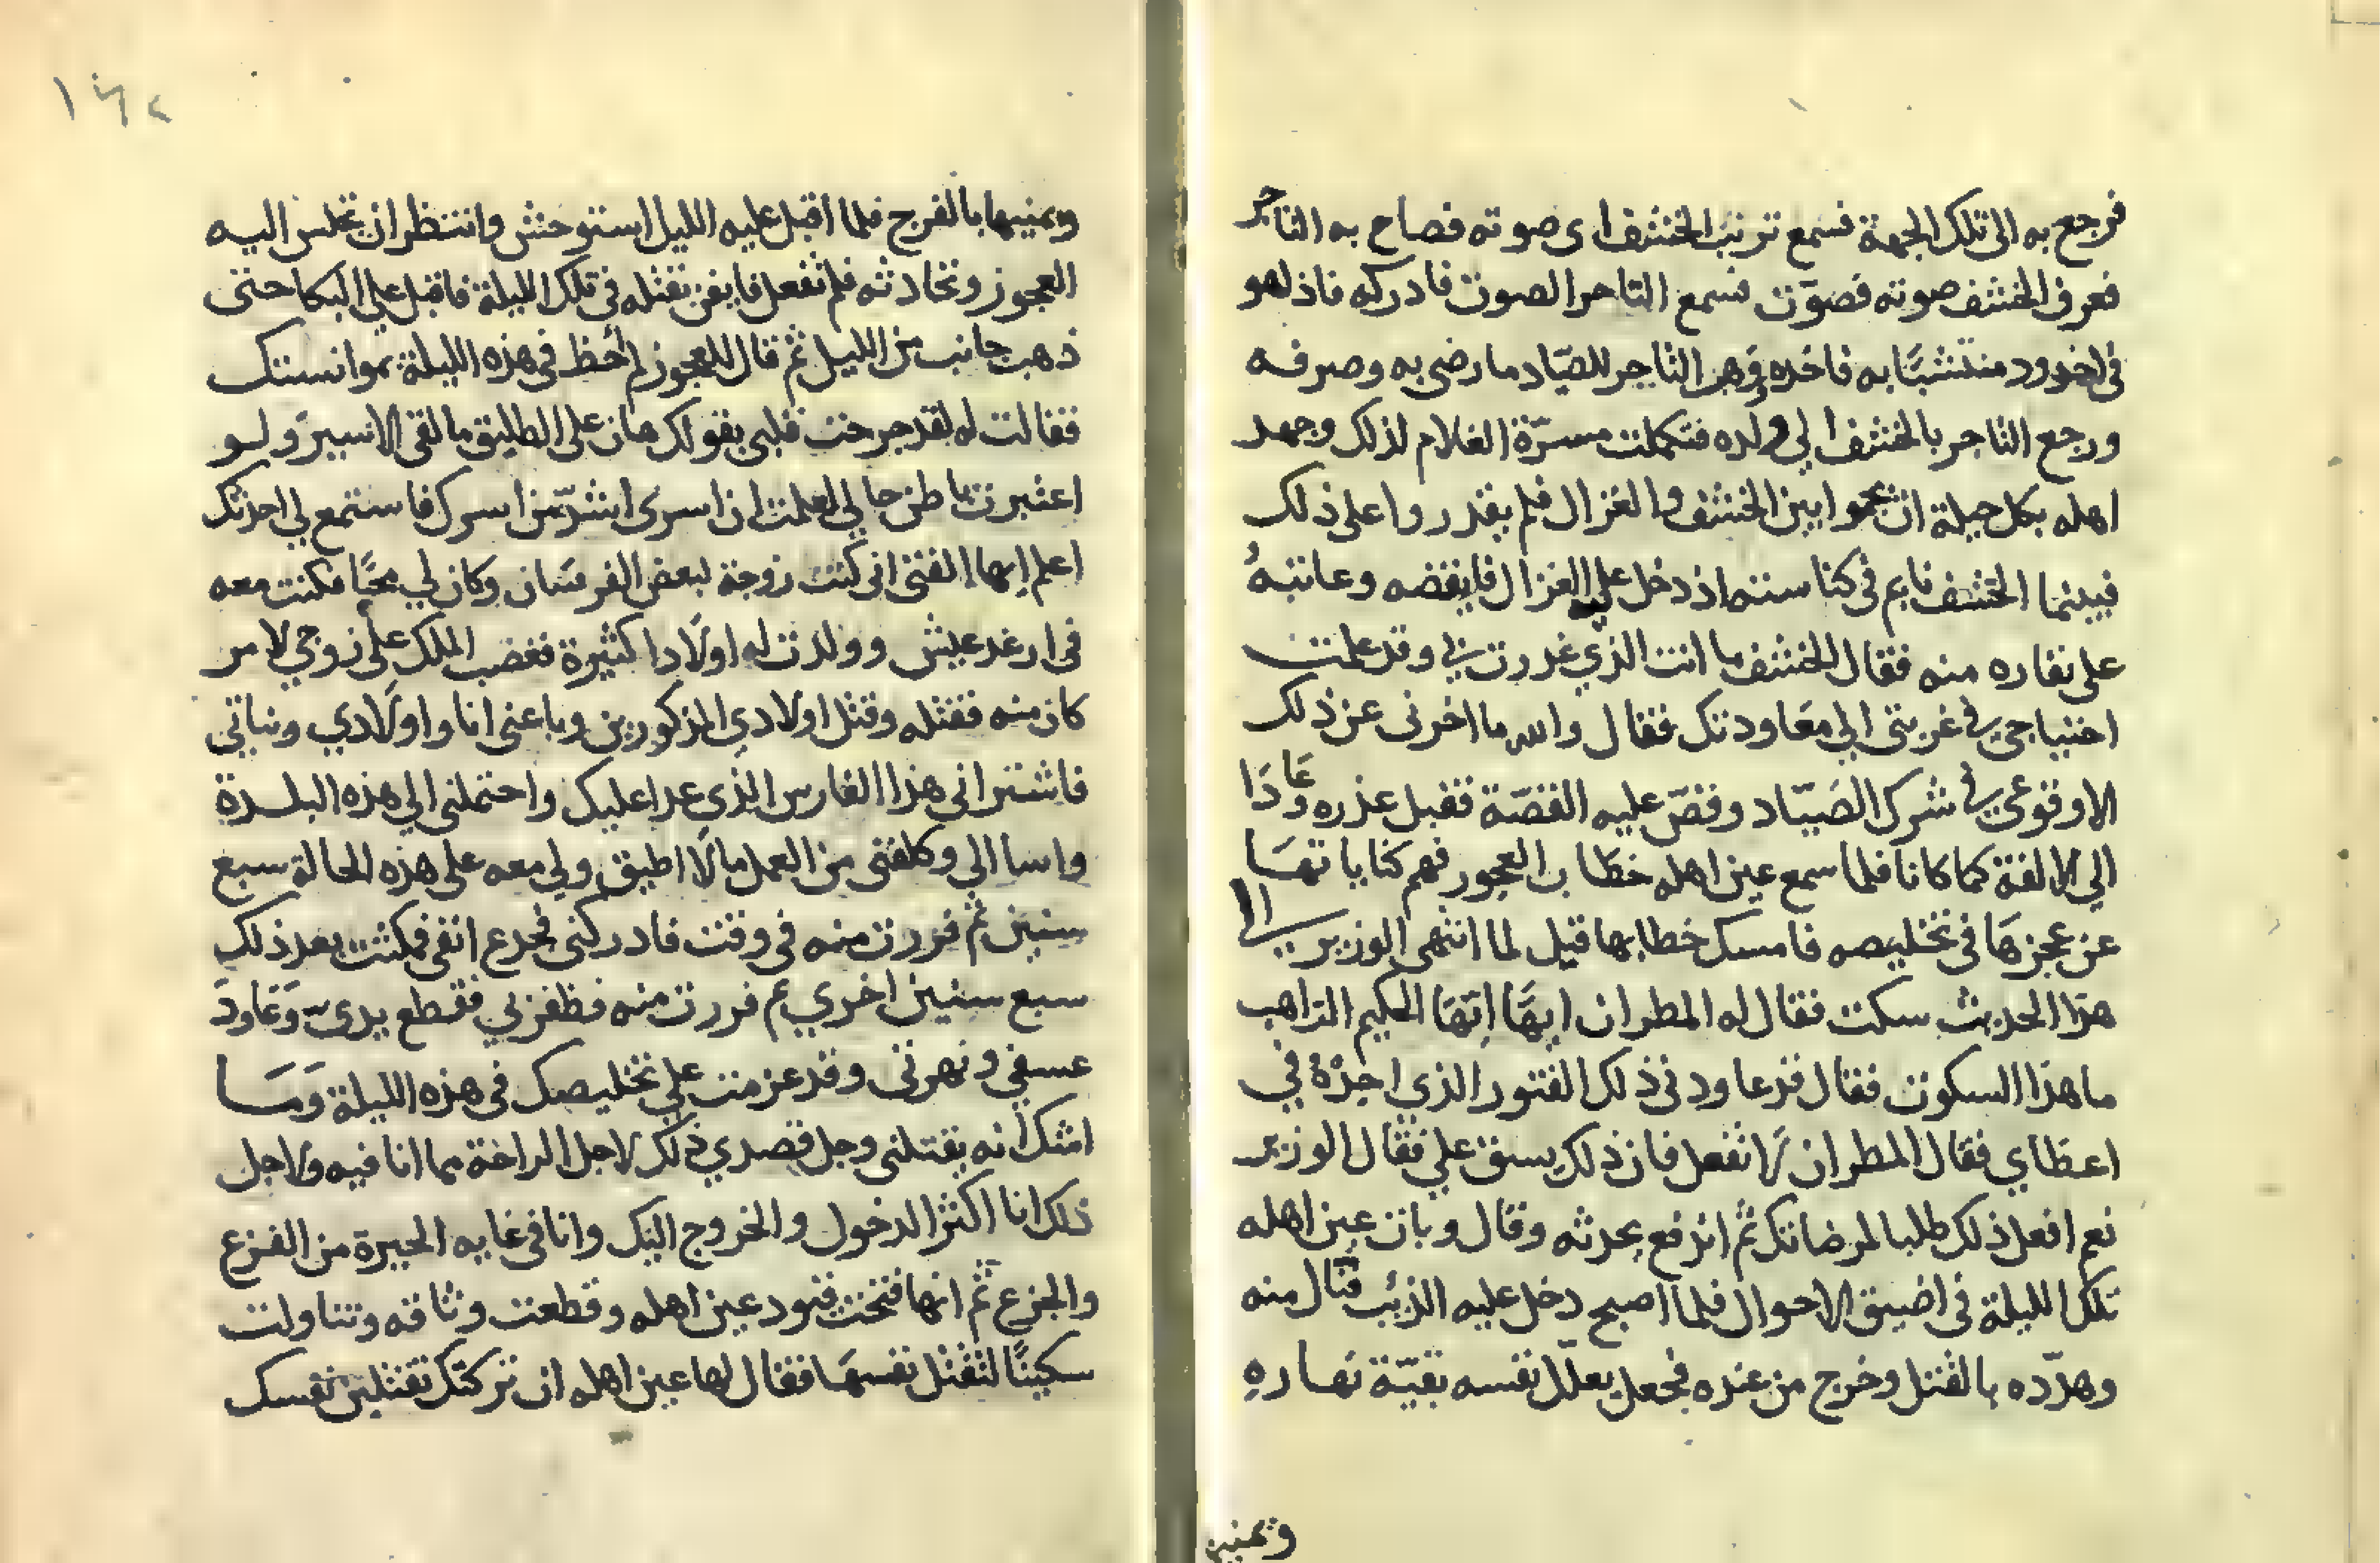 فرجع به الى تلك الجهة فسمع نزيب الخشف اى صوته فصاح به التاجر
فعرف الخشف صوته فصوّت فسمع التاجر الصوت فادركه فاذا هو
فى اخدود منتشبًا به فاخذه ووهب التاجر للصيّاد ما رضى به وصرفه
ورجع التاجر بالخشف الى ولده فتكملت مسرّة الغلام لذلك وجهد
اهله بكل حيلة ان يجمعوا بين الخشف والغزال فلم يقدروا على ذلك
فبينما الخشف نايم في كناسته اذ دخل عليه الغزال فايقضه وعاتبه
على نفاره منه فقال الخشف ما انت الذي غدرت بي وقد علمت
احتياجي في غربتي الي معاودتك فقال والله ما اخرنى عن ذلك
الا وقوعي في شرك الصيّاد وقصّ عليه القصّة فقبل عذره وعَادَا
الي الالفة كما كانا فلما سمع عين اهله خطاب العجوز فهم كناياتها
عن عجزها فى تخليصه فامسك خطابها قيل لما انتهى الوزير الي
هذا الحديث سكت فقال له المطران ايّها الحكيم الراهب
ما هذا السكوت فقال قد عاودنى ذلك الفتور الذي اجده في
اعظاي فقال المطران لا تفعل فان ذلك يسق علي فقال الوزير
نعم افعل ذلك طلبا لمرضاتك ثم اندفع يحدثه وقال وبات عين اهله
تلك الليلة فى اضيق الاحوال فلما اصبح دخل عليه الذئب فنال منه
وهدّده بالقتل وخرج من عنده فجعل يعلّل نفسه بقيّة نهاره
ويمنيها
ويمنيها بالفرج فلما اقبل عليه الليل استوحش وانتظر ان تجلس اليه
العجوز وتحادثه فلم تفعل فايقن بقتله فى تلك الليلة فاقبل على البكا حتى
ذهب جانب من الليل ثم قال للعجوز لم أحظ فى هذه الليلة بموانستك
فقالت له لقد جرحت قلبي بقولك هان على الطليق ما لقى الاسير ولو
اعتبرت باطن حالي لعلمت ان اسرى اشدّ من اسرك فاستمع لي احدثك
اعلم ايها الفتى انى كنت زوجة لبعض الفرسان وكان لي محبًا فمكثت معه
فى ارغد عيش وولدت له اولادا كثيرة فغضب الملك على زوجي لامر
كان منه فقتله وقتل اولادي المذكورين وباعنى انا واولادي وبناتى
فاشترانى هذا الفارس الذى عدا عليك واحتملنى الي هذه البلدة
واسا الي وكلفنى من العمل ما لا اطيق ولي معه على هذه الحالة سبع
سنين ثم فررت منه في وقت فادركنى فجدع انفى فمكثت بعد ذلك
سبع سنين اخري ثم فررت منه فظفر بي فقطع يدى وَعَاوَدَ
عسفي ونهرنى وقد عزمت على تخليصك فى هذه الليلة وَمَا
اشك انه يقتلنى وجل قصدي ذلك لاجل الراحة مما انا فيه ولاجل
ذلك انا اكثر الدخول والخروج اليك وانا فى غايه الحيرة من الفزع
والجزع ثم انها فتحت قيود عين اهله وقطعت وثاقه وتناولت
سكينًا لتقتل نفسها فقال لها عين اهله ان تركتك تقتلين نفسك